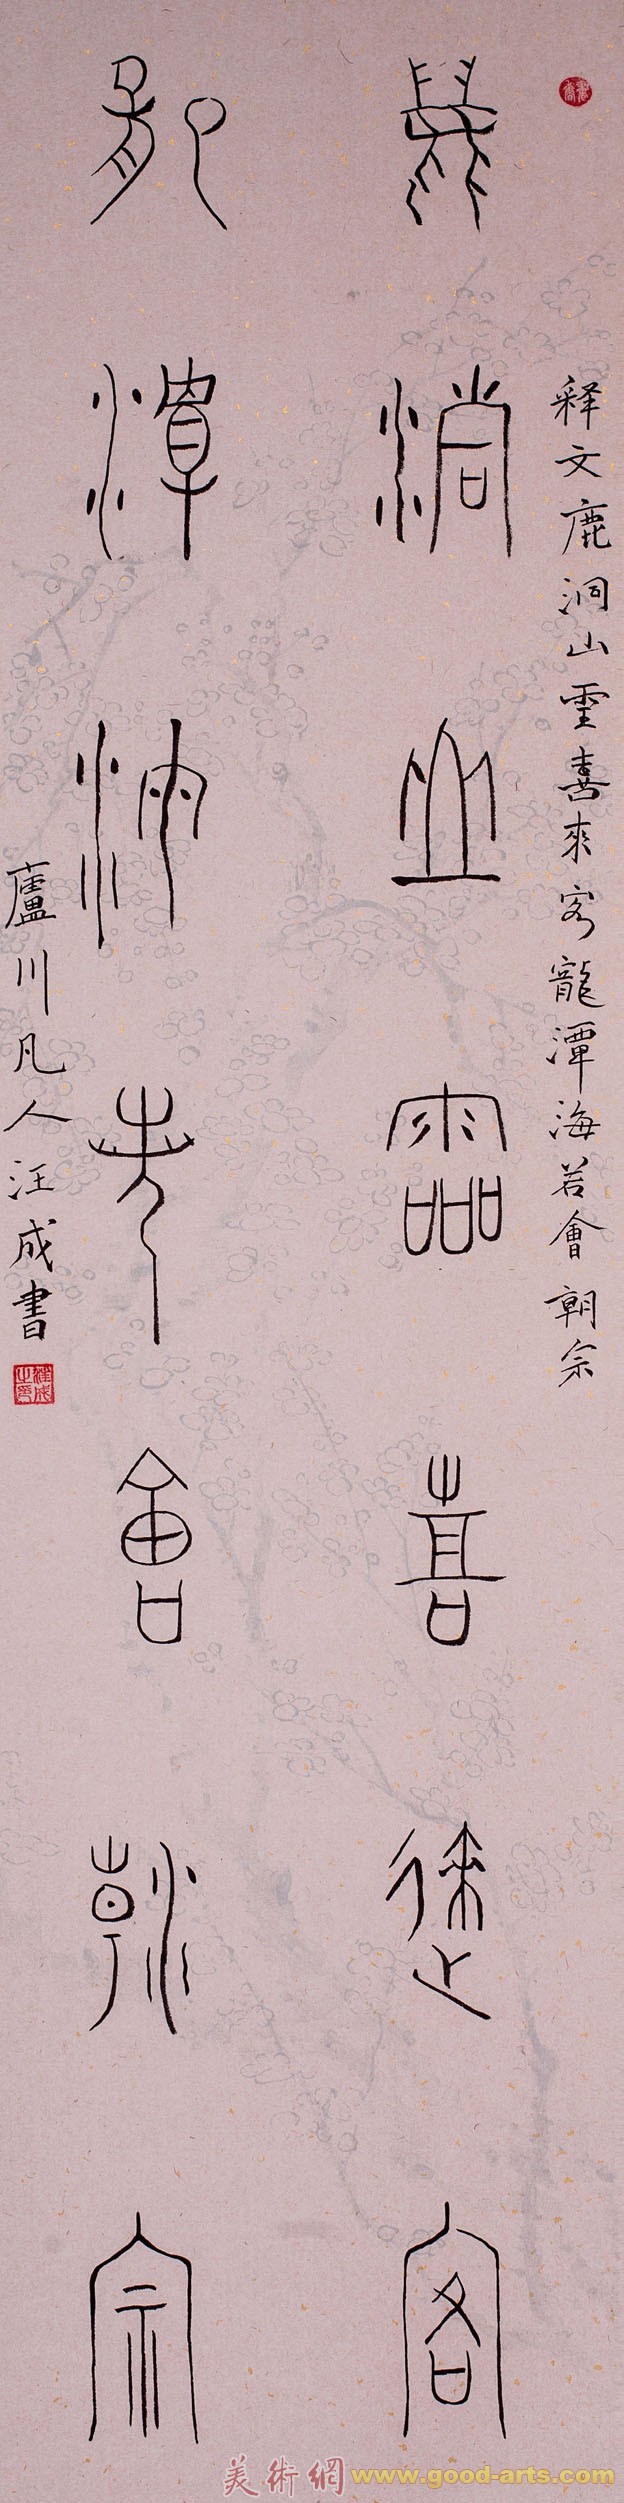 释文鹿洞山靈喜來客寵潭海若會朝宗
鹿洞山霝喜逨客
龍潭海若會朝宗
廬川凡人汪成書
汪成之印
美術網 www.good-arts.com